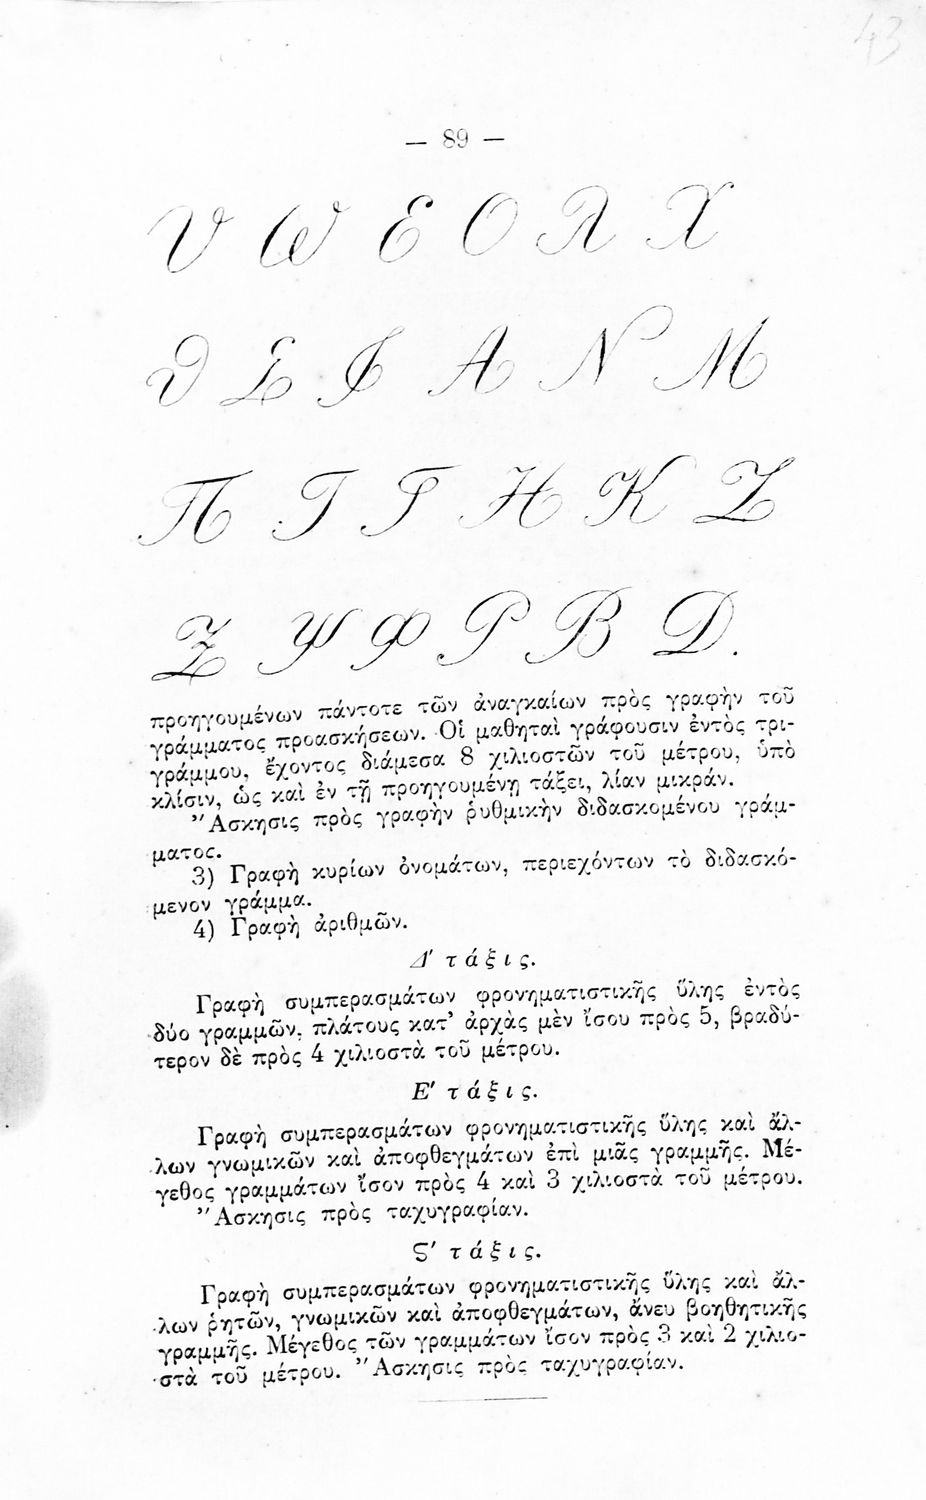 43
— 89 —
Υ Ω Ε Ο Λ Χ
Θ Σ Ι Α Ν Μ
Π Τ Γ Η Κ Ζ
Ξ Ψ Φ Ρ Β D.
προηγουμένων πάντοτε τῶν ἀναγκαίων πρὸς γραφὴν τοῦ
γράμματος προασκήσεων. Οἱ μαθηταὶ γράφουσιν ἐντὸς τρι-
γράμμου, ἔχοντος διάμεσα 8 χιλιοστῶν τοῦ μέτρου, ὑπὸ
κλίσιν, ὡς καὶ ἐν τῇ προηγουμένῃ τάξει, λίαν μικράν.
Ἄσκησις πρὸς γραφὴν ῥυθμικὴν διδασκομένου γράμ-
ματος.
3) Γραφὴ κυρίων ὀνομάτων, περιεχόντων τὸ διδασκό-
μενον γράμμα.
4) Γραφὴ ἀριθμῶν.
Δ' τάξις.
Γραφὴ συμπερασμάτων φρονηματιστικῆς ὕλης ἐντὸς
δύο γραμμῶν, πλάτους κατ' ἀρχὰς μὲν ἴσου πρὸς 5, βραδύ-
τερον δὲ πρὸς 4 χιλιοστὰ τοῦ μέτρου.
Ε' τάξις.
Γραφὴ συμπερασμάτων φρονηματιστικῆς ὕλης καὶ ἄλ-
λων γνωμικῶν καὶ ἀποφθεγμάτων ἐπὶ μιᾶς γραμμῆς. Μέ-
γεθος γραμμάτων ἴσον πρὸς 4 καὶ 3 χιλιοστὰ τοῦ μέτρου.
Ἄσκησις πρὸς ταχυγραφίαν.
Ϛ' τάξις.
Γραφὴ συμπερασμάτων φρονηματιστικῆς ὕλης καὶ ἄλ-
λων ῥητῶν, γνωμικῶν καὶ ἀποφθεγμάτων, ἄνευ βοηθητικῆς
γραμμῆς. Μέγεθος τῶν γραμμάτων ἴσον πρὸς 3 καὶ 2 χιλιο-
στὰ τοῦ μέτρου. Ἄσκησις πρὸς ταχυγραφίαν.